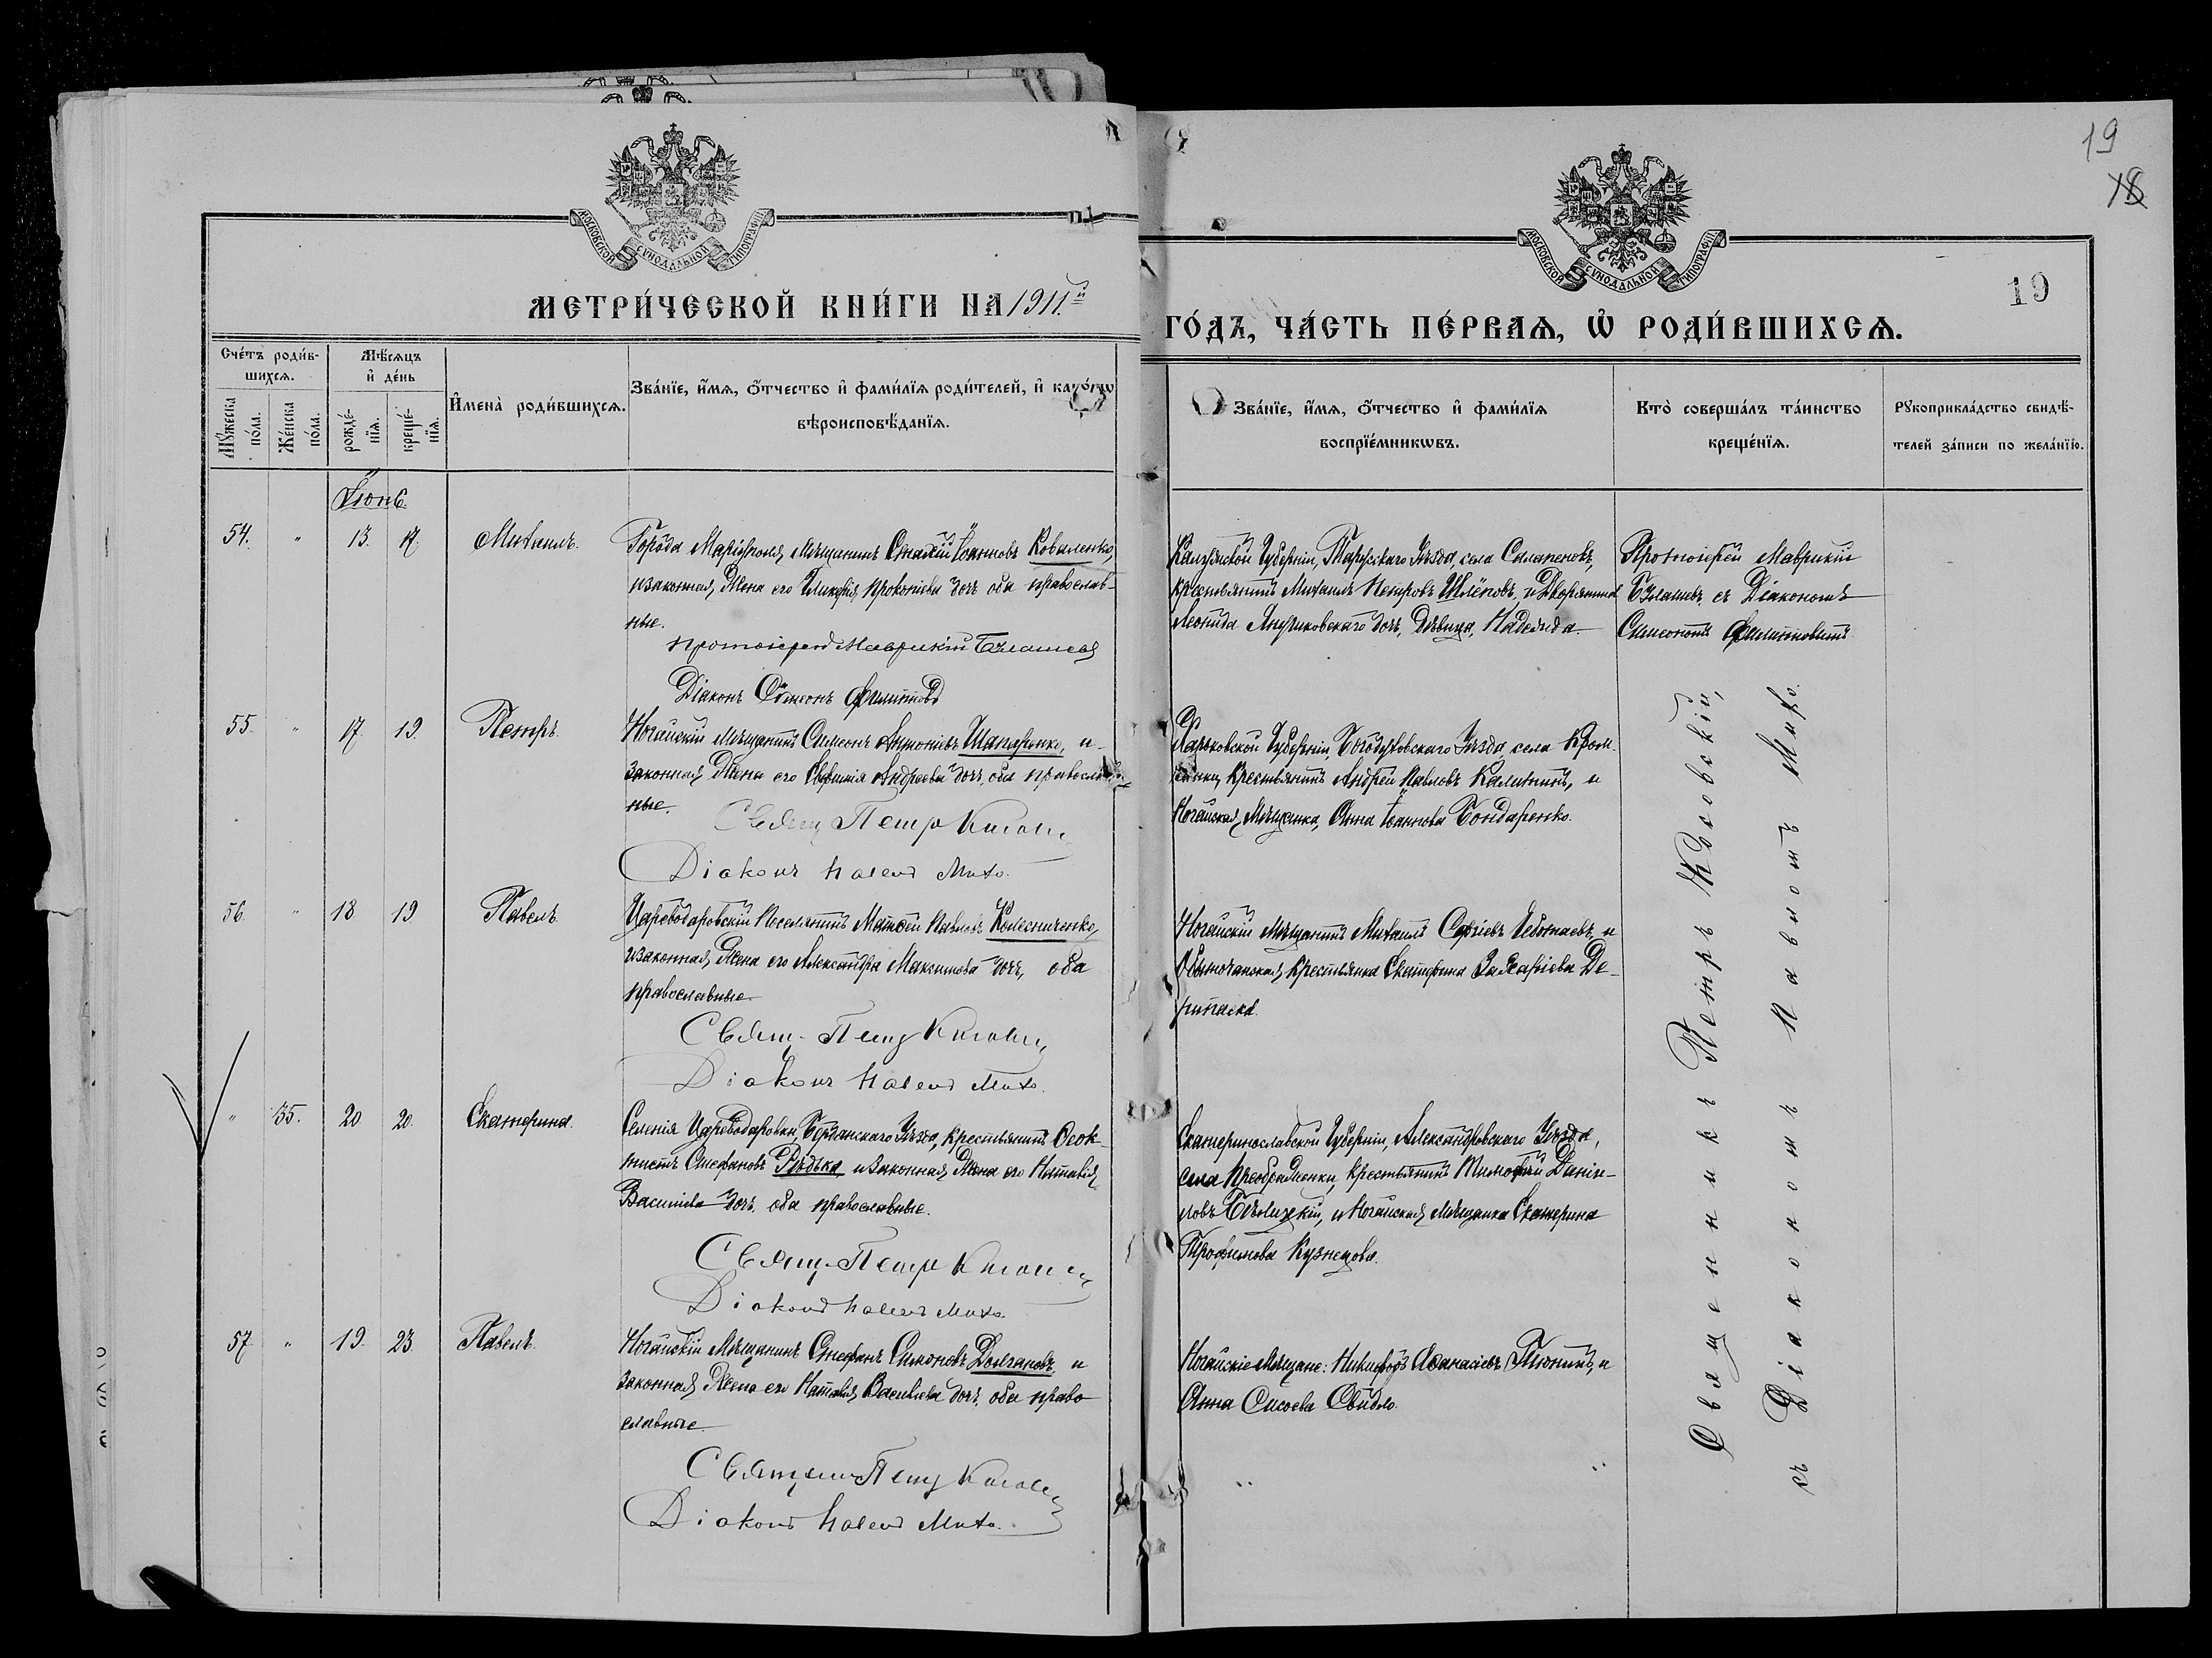 19
18
19
МОСКОВСКОЙ СѴНОДАЛЬНОЙ ТИПОГРАФІИ
МОСКОВСКОЙ СѴНОДАЛЬНОЙ ТИПОГРАФІИ
МЕТРИ́ЧЕСКОЙ КНИ́ГИ НА 1911й
ГО́ДЪ, ЧА́СТЬ ПЕ́РВАѦ, Ѡ҆ РОДИ́ВШИХСѦ.
Сче́тъ роди́в-
шихсѧ.
Мꙋ́жеска по́ла.
Же́нска по́ла.
Мѣ́сѧцъ
и҆ де́нь
рожде́-
нїѧ.
креще́-
нїѧ.
И҆мена̀ роди́вшихсѧ.
Зва́нїе, и҆́мѧ, ѻ҆́тчество и҆ фами́лїѧ роди́телей, и҆ како́гѡ
вѣроисповѣ́данїѧ.
Зва́нїе, и҆́мѧ, ѻ҆́тчество и҆ фами́лїѧ
воспрїе́мникѡвъ.
Кто̀ соверша́лъ та́инство
креще́нїѧ.
Рꙋкоприкла́дство свидѣ́-
телей за́писи по жела́нїю.
Іюнь.
54. " 13. 17. Михаилъ.
Города Маріуполя, мѣщанинъ Стахій Іоанновъ Коваленко,
и законная жена его Гликерія Прокопіева дочь оба православ-
ные.
Протоіерей Маврикій Бѣлашевъ
Діаконъ Сѵмеонъ Филипповъ
Калужской Губерніи, Тарусскаго Уѣзда, села
крестьянинъ Михаилъ Петровъ Шлёповъ, и Дворянина
Леонида дочь, дѣвица, Надежда.
Протоіерей Маврикій
съ Діакономъ
Симеономъ Филипповымъ
55. " 17. 19. Петръ.
Ногайскій мѣщанинъ Симеонъ Антоніевъ Шапаренко, и
законная жена его Евфимія Андреева дочь, оба православ-
ные.
Свящ. Петръ
Діаконъ Павелъ Михо.
Харьковской Губерніи, Богодуховскаго Уѣзда села
крестьянинъ Андрей Павловъ Калитинъ, и
Ногайская мѣщанка, Анна Іоаннова Бондаренко.
56. " 18 19 Павелъ.
Цареводаровскій поселянинъ Матѳей Павловъ Колесниченко,
и законная жена его Александра Максимова дочь, оба
православные.
Свящ. Петръ
Діаконъ Павелъ Михо.
Ногайскій мѣщанинъ Михаилъ Сергіевъ Чеботаевъ, и
Обыточанская крестьянка Екатерина Захаріева Де-
рипаска.
" 35. 20. 20. Екатерина.
Селенія Цареводаровки, Бердянскаго Уѣзда, крестьянинъ Ѳеок-
тистъ Стефановъ Рѣдька, и законная жена его Наталія
Василіева дочь, оба православные.
Свящ. Петръ
Діаконъ Павелъ Михо.
Екатеринославской Губерніи, Александровскаго Уѣзда,
села Преображенки, крестьянинъ Тимофей Даніи-
ловъ и Ногайская мѣщанка Екатерина
Трофимова Кузнецова.
57 " 19. 23. Павелъ.
Ногайскій мѣщанинъ Стефанъ Симоновъ Долгановъ, и
законная жена его Наталія Васильева дочь, оба право
славные.
Священ. Петръ
Діаконъ Павелъ Михо.
Ногайскіе мѣщане: Никифоръ Аѳанасіевъ Тюнинъ, и
Анна Сисоева Свидло.
Священникъ Петръ Косовскій,
съ Діакономъ Павломъ Михо.